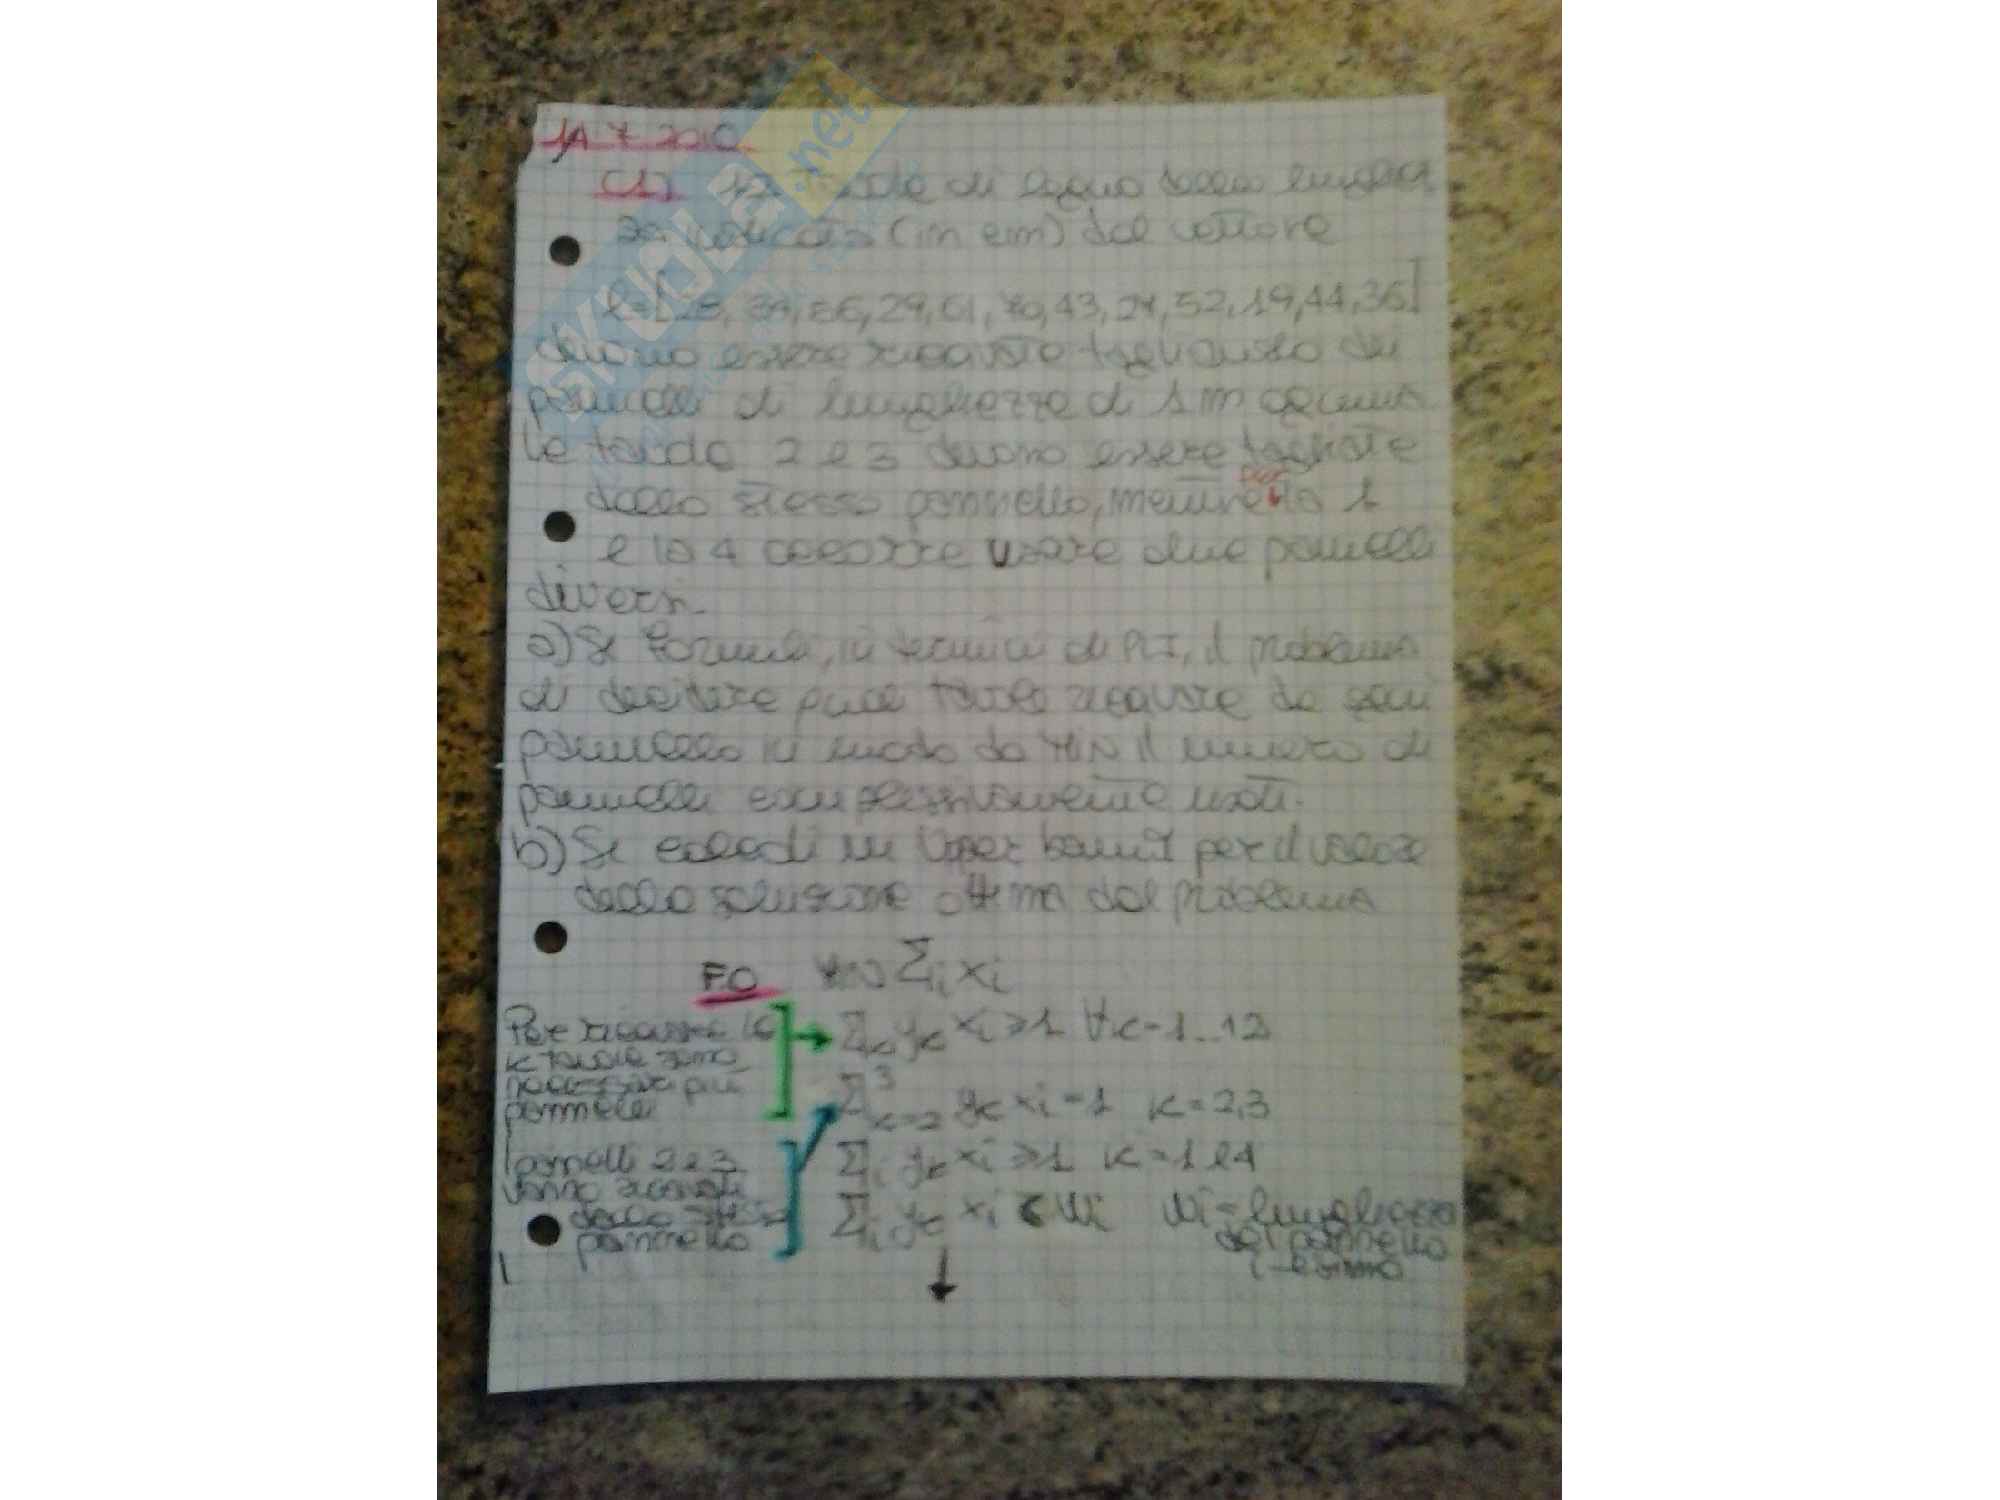 C1) 12 di legno della lunghezza
(in cm) dal vettore
29, 61, 70, 43, 27, 52, 19, 44, 36]
devono essere ricavate tagliando dei
pannelli di lunghezza di 1 m ognuno
Le tavole 2 e 3 devono essere tagliate
dallo stesso pannello, mentre per la 1
e la 4 occorre usare due pannelli
diversi.
a) Si formuli, in termini di PLI, il problema
di decidere quali tavole ricavare da ogni
pannello in modo da MIN il numero di
pannelli complessivamente usati.
b) Si calcoli un Upper bound per il valore
della soluzione ottima del problema
F.O MIN Σi xi
Per ricavare le
k tavole sono
necessari più
pannelli
Σ yk xi ≥ 1 ∀k = 1...12
Σ³k=2 yk xi = 1 k = 2,3
I pannelli 2 e 3
vanno ricavati
dallo stesso
pannello
Σi yk xi ≥ 1 k = 1 e 4
Σi yk xi ≤ Wi Wi = lunghezza
del pannello
i-esimo
SKUOLA.net